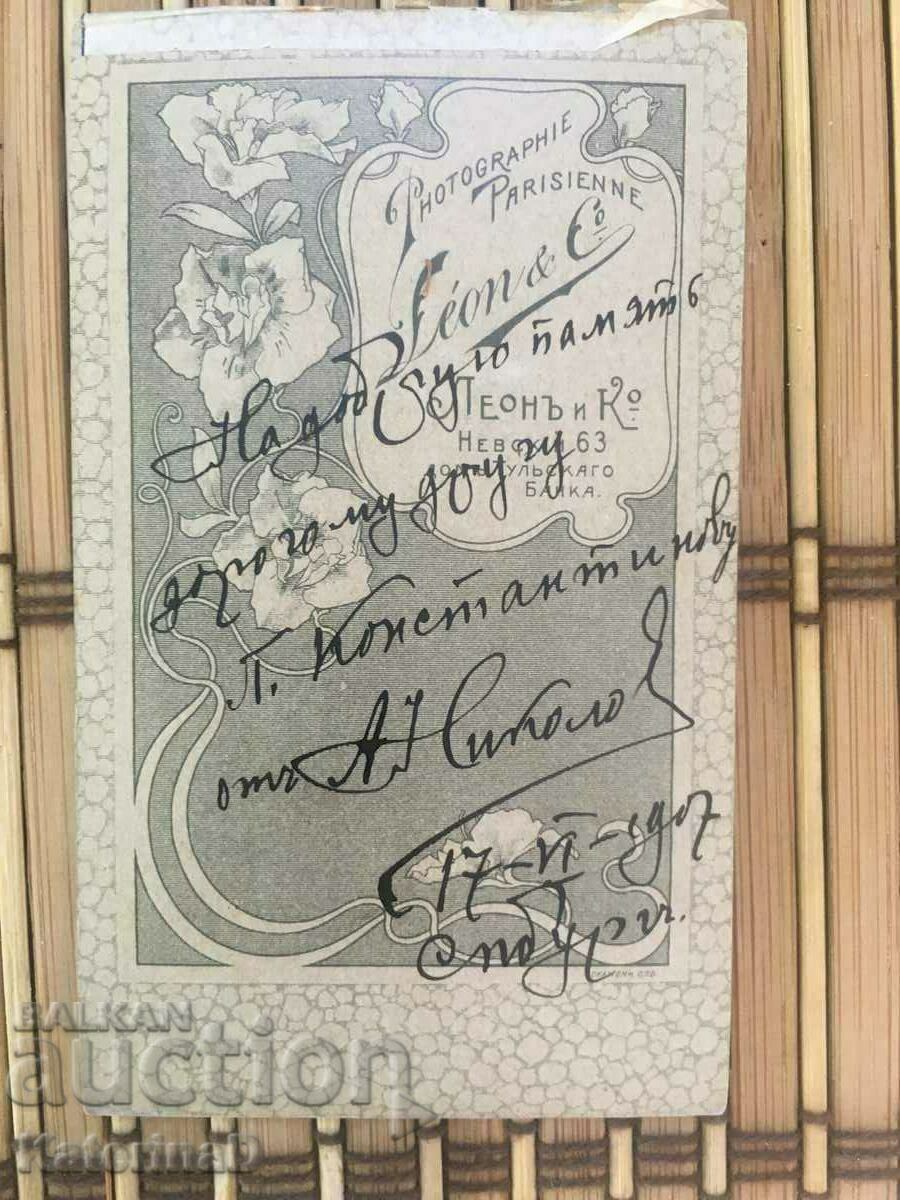 PHOTOGRAPHIE
PARISIENNE
Léon & Cº
ЛЕОНЪ И Кº
НЕВСКІЙ, 63
БАНКА.
На добрую память
дорогому другу
П. Константинову
отъ А Николов
17-VI-1907
Спбургъ.
BALKAN
auction
KaterinaD